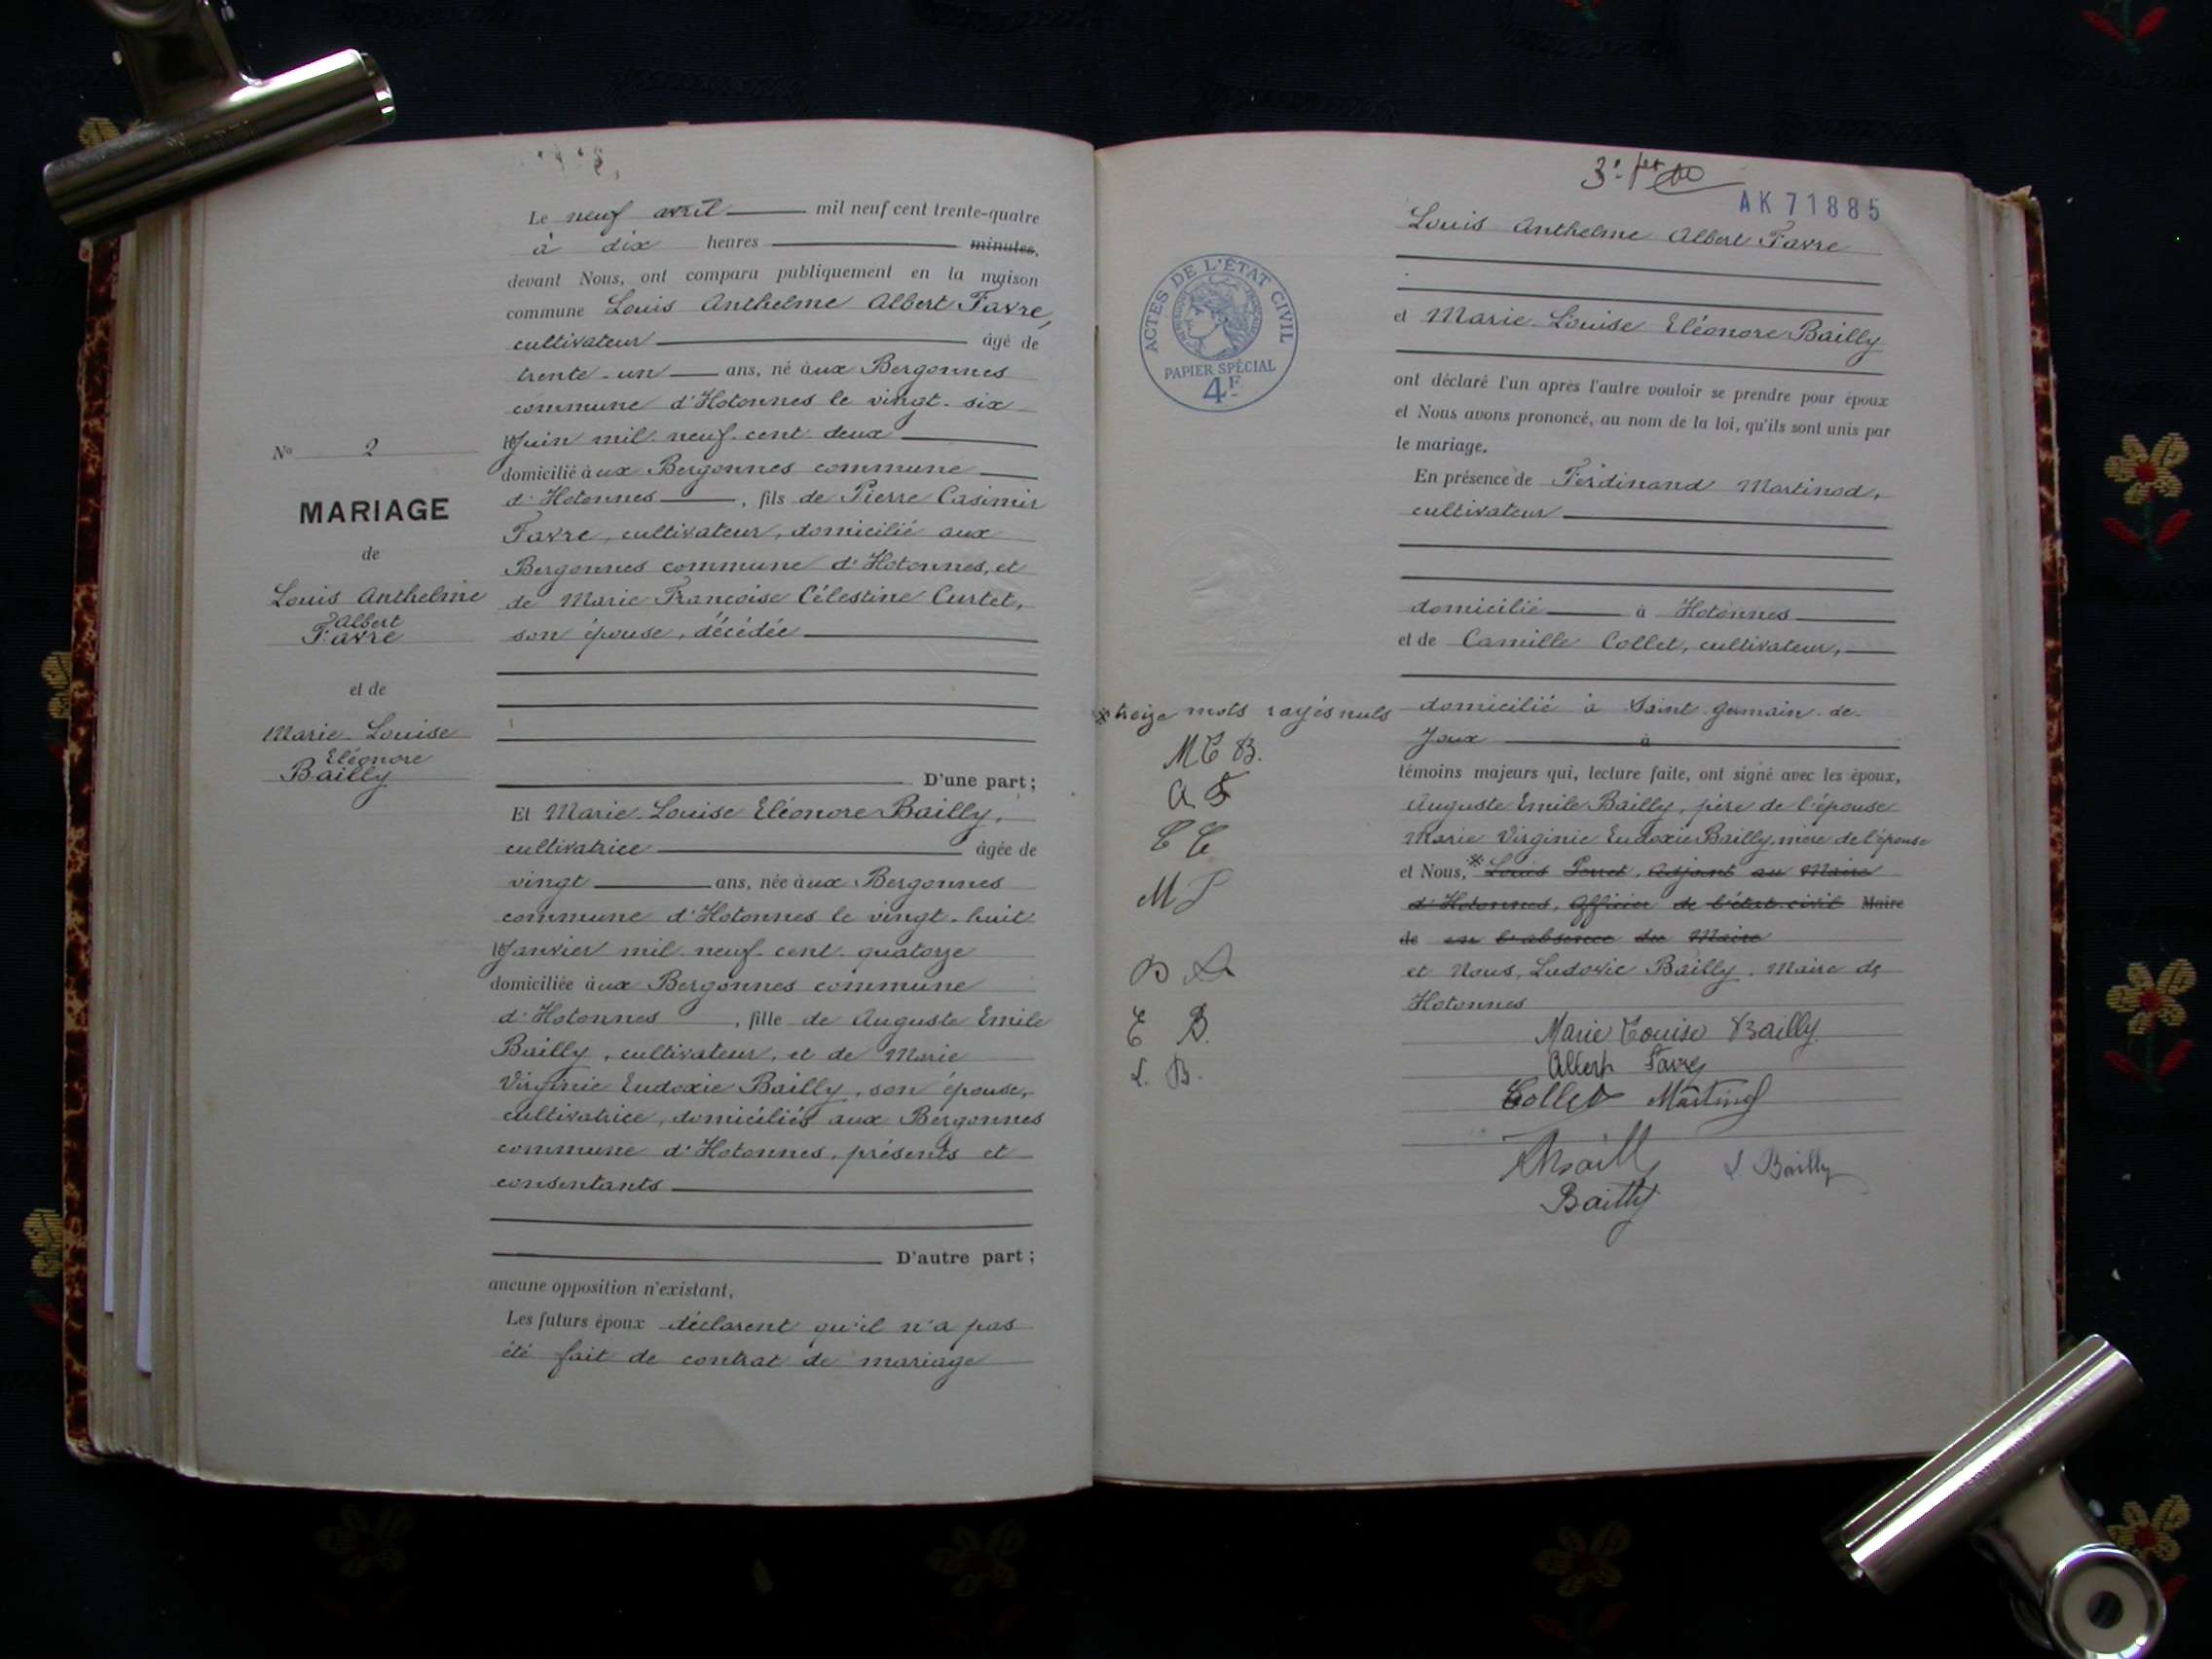 Le neuf avril mil neuf cent trente-quatre
à dix heures minutes,
devant Nous, ont comparu publiquement en la maison
commune Louis Anthelme Albert Favre,
cultivateur âgé de
trente-un ans, né aux Bergonnes
commune d'Hotonnes le vingt-six
Juin mil neuf cent deux
domicilié aux Bergonnes commune
d'Hotonnes, fils de Pierre Casimir
Favre, cultivateur, domicilié aux
Bergonnes commune d'Hotonnes, et
de Marie Françoise Célestine Curtet,
son épouse, décédée
D'une part ;
Et Marie-Louise Eléonore Bailly,
cultivatrice âgée de
vingt ans, née aux Bergonnes
commune d'Hotonnes le vingt-huit
Janvier mil neuf cent quatorze
domiciliée aux Bergonnes commune
d'Hotonnes, fille de Auguste Emile
Bailly, cultivateur, et de Marie
Virginie Eudoxie Bailly, son épouse,
cultivatrice, domiciliés aux Bergonnes
commune d'Hotonnes, présents et
consentants
D'autre part ;
aucune opposition n'existant,
Les futurs époux déclarent qu'il n'a pas
été fait de contrat de mariage
No 2
MARIAGE
de
Louis Anthelme
Albert
Favre
et de
Marie-Louise
Eléonore
Bailly
AK 71885
Louis Anthelme Albert Favre
et Marie-Louise Eléonore Bailly
ont déclaré l'un après l'autre vouloir se prendre pour époux
et Nous avons prononcé, au nom de la loi, qu'ils sont unis par
le mariage.
En présence de Ferdinand Martinod,
cultivateur
domicilié à Hotonnes
et de Camille Collet, cultivateur,
domicilié à Saint-Germain-de-
Joux à
témoins majeurs qui, lecture faite, ont signé avec les époux,
Auguste Emile Bailly, père de l'épouse
Marie Virginie Eudoxie Bailly, mère de l'épouse
et Nous, * Louis Perret, Adjoint au Maire
d'Hotonnes, Officier de l'état-civil Maire
de en l'absence du Maire
et Nous, Ludovic Bailly, Maire de
Hotonnes
Marie Louise Bailly
Albert Favre
Collet Martinod
Bailly L Bailly
Bailly
ACTES DE L'ÉTAT CIVIL
PAPIER SPÉCIAL
4F
* treize mots rayés nuls
M L B.
A F
C C
E B.
L. B.